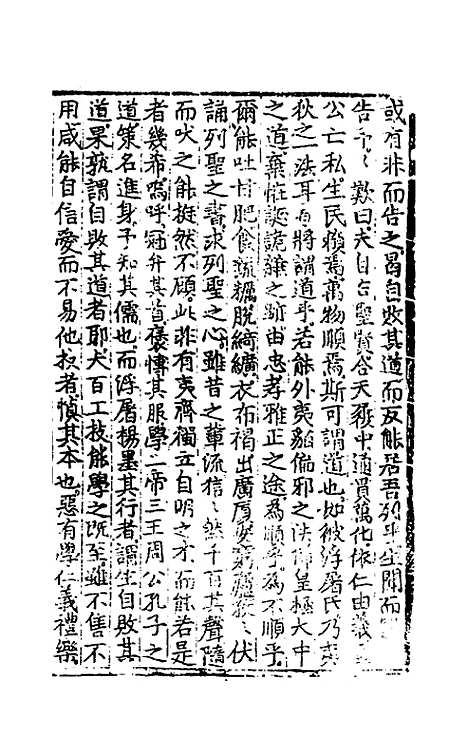 或有非而告之曷自敗其道而反能居吾列乎生聞而
告予予歎曰夫自古聖賢答天釐中通貫萬化依仁由義
公亡私生民賴焉萬物順焉斯可謂道也如彼浮屠氏乃夷
狄之一法耳再將謂道乎若能外夷貊偏邪之法歸皇極大中
之道棄怪誕詭譎之跡由忠孝雅正之途為順乎為不順乎
爾能吐甘肥食蔬糲脫綺纊衣布褐出廣廈 窮廬 伏
誦列聖之書求列聖之心雖昔之輩流信信然千百其聲隨
而吠之能挺然不顧此非有夷齊獨立自明之才而能若是
者幾希嗚呼冠弁其首襃愽其服學二帝三王周公孔子之
道策名進身予知其儒也而浮屠楊墨其行者謂生自敗其
道果孰謂自敗其道者耶夫百工技能學之既至雖不售不
用咸能自信愛而不易他技者慎其本也惡有學仁義禮樂